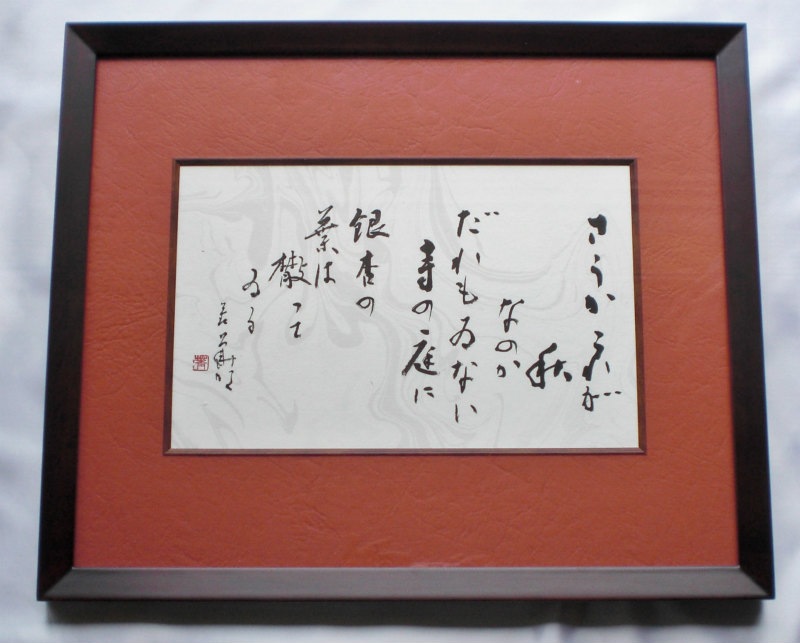 さうか これが
秋
なのか
だれもゐない
寺の庭に
銀杏の
葉は
散って
ゐる